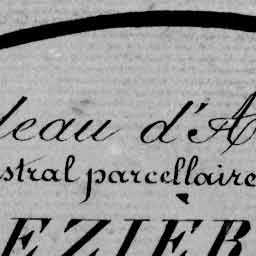 leau d'A
stral parcellaire
EZIÈR